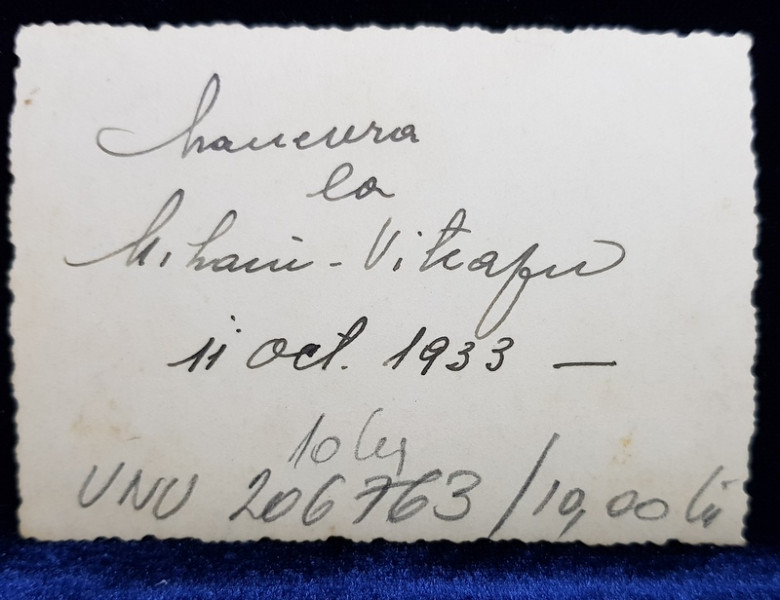 Manevra
la
Mihaiu-Viteazu
11 Oct. 1933 —
10 lei
UNU 206763 /10,00 lei